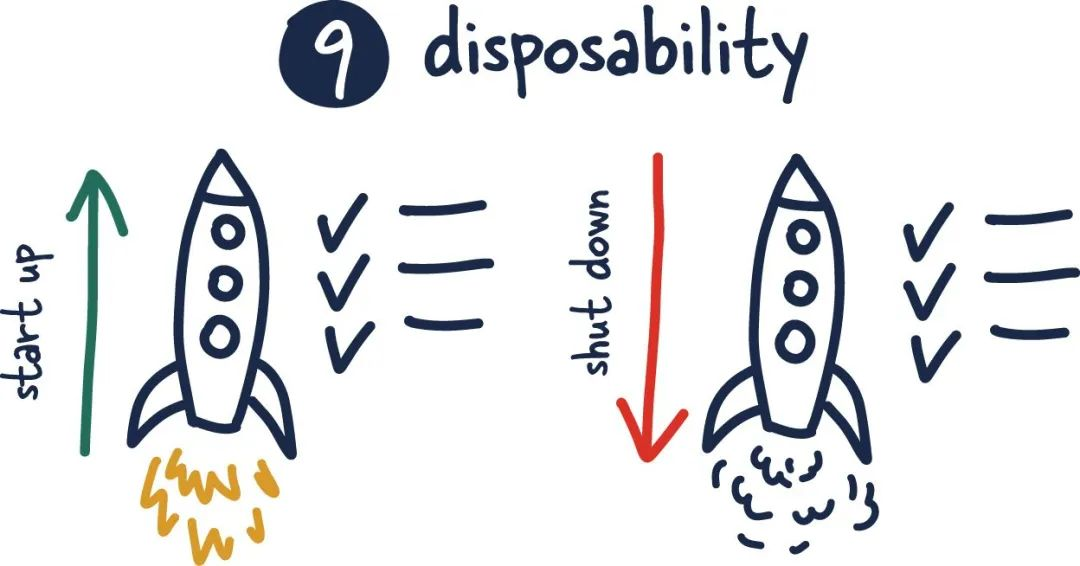 9 disposability
start up
shut down